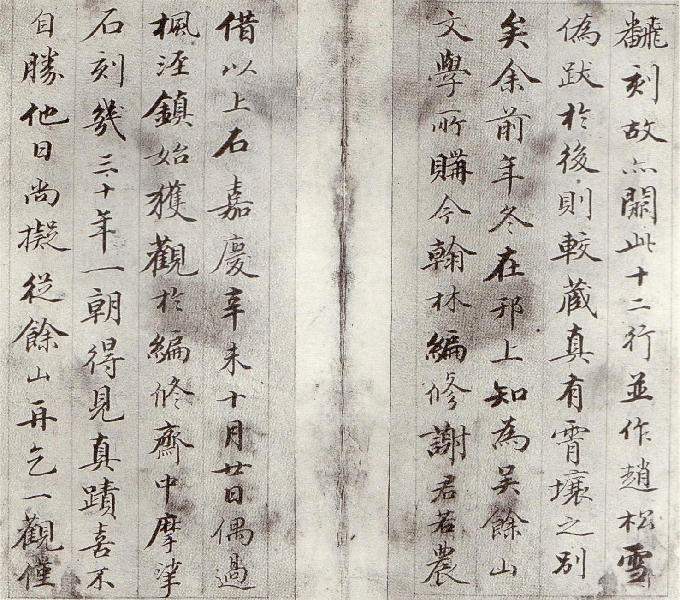 翻刻故亦闕此十二行並作趙松雪
偽跋於後則較藏真有霄壤之別
矣余前年冬在邗上知為吴餘山
文學所購今翰林編修謝君若農
借以上石嘉慶辛未十月廿日偶過
楓涇鎮始獲觀於編修齋中摩挲
石刻幾三十年一朝得見真蹟喜不
自勝他日尚擬從餘山再乞一觀僅